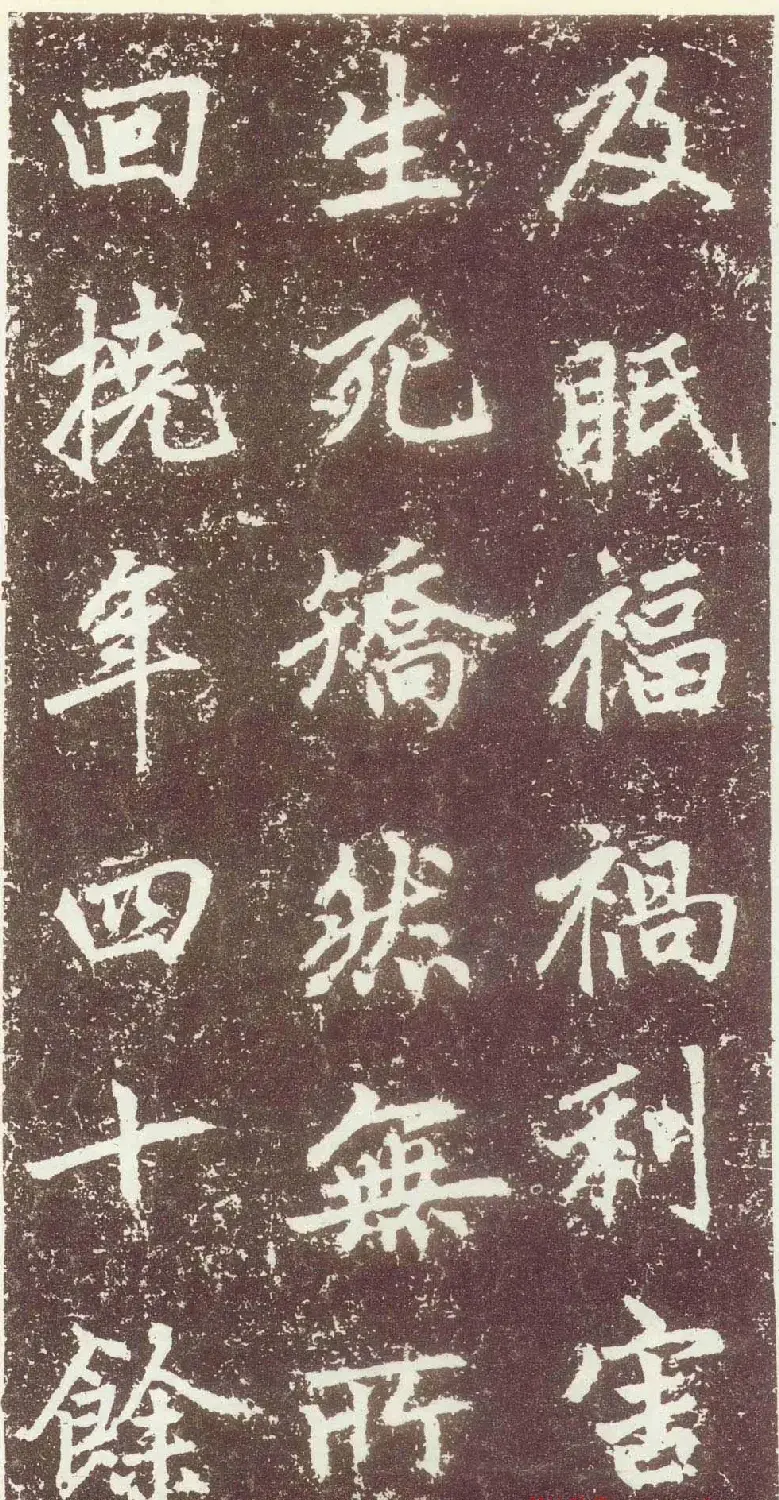 及眂福禍利害
生死矯然無所
回撓年四十餘